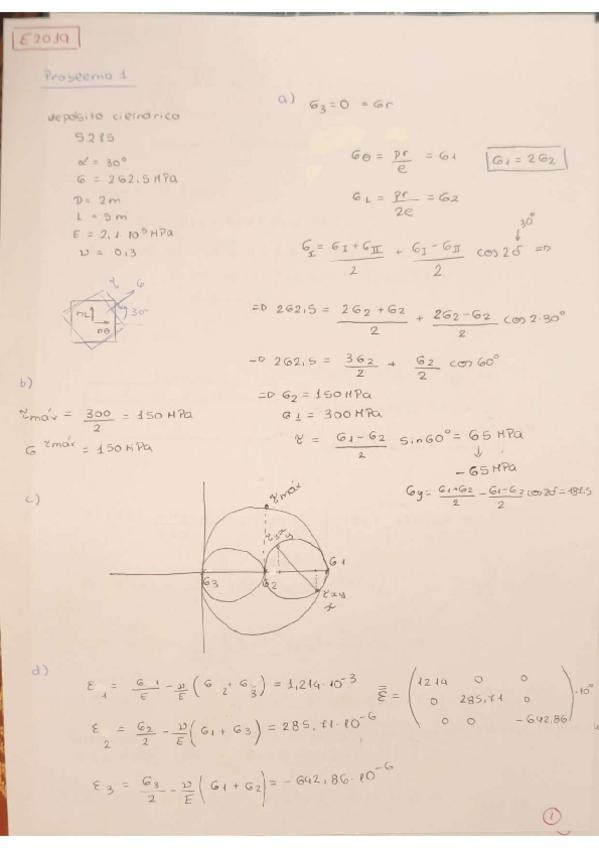 E2019
Problema 1
depósito cilíndrico
S275
α = 30°
σ = 262,5 MPa
D = 2m
L = 5m
E = 2,1·10⁵ MPa
ν = 0,3
τ σ
nL 30°
nθ
a) σ3 = 0 = σr
σθ = pr/e = σ1 σ1 = 2σ2
σL = pr/2e = σ2
30°
σI = (σI + σII)/2 + (σI - σII)/2 cos 2δ =>
=> 262,5 = (2σ2 + σ2)/2 + (2σ2 - σ2)/2 cos 2·30°
-> 262,5 = 3σ2/2 + σ2/2 cos 60°
=> σ2 = 150 MPa
σ1 = 300 MPa
τ = (σ1 - σ2)/2 sin 60° = 65 MPa
↓
- 65 MPa
σy = (σ1+σ2)/2 - (σ1-σ2)/2 cos 2δ = 187.5
b)
τmáx = 300/2 = 150 MPa
σ τmáx = 150 MPa
c)
τmáx
σ3 σ2 σ1
τxy
x
d)
ε1 = σ1/E - ν/E (σ2 + σ3) = 1,214·10⁻³
ε2 = σ2/2 - ν/E (σ1 + σ3) = 285,71·10⁻⁶
ε3 = σ3/2 - ν/E (σ1 + σ2) = - 642,86·10⁻⁶
ε =
1214 0 0
0 285,71 0
0 0 -642,86
1